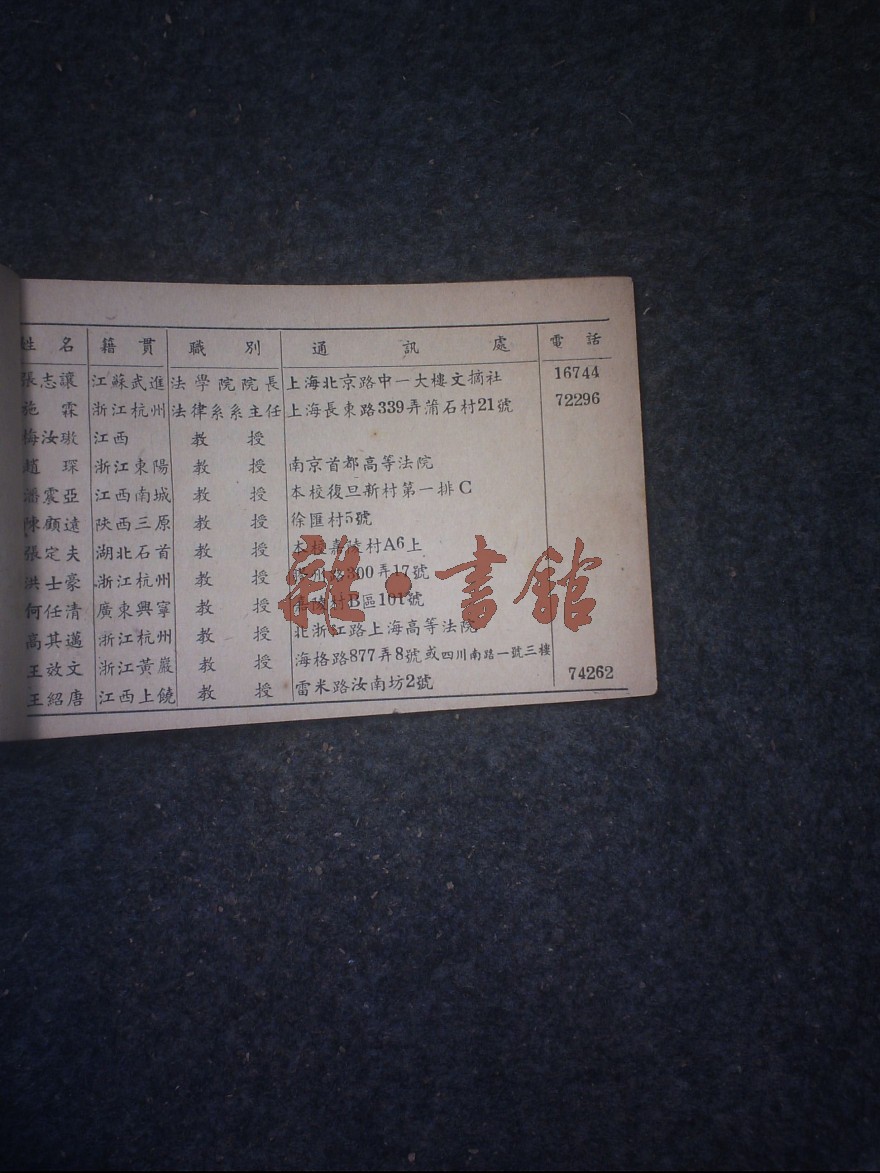 姓名 籍貫 職別 通訊處 電話
張志讓 江蘇武進 法學院院長 上海北京路中一大樓文摘社 16744
施霖 浙江杭州 法律系系主任 上海長東路339弄蒲石村21號 72296
梅汝璈 江西 教授
趙琛 浙江東陽 教授 南京首都高等法院
潘震亞 江西南城 教授 本校復旦新村第一排C
陳顧遠 陝西三原 教授 徐匯村5號
張定夫 湖北石首 教授 本校嘉陵村A6上
洪士豪 浙江杭州 教授 路300弄17號
何任清 廣東興寧 教授 嘉陵村B區101號
高其邁 浙江杭州 教授 北浙江路上海高等法院
王效文 浙江黃巖 教授 海格路877弄8號或四川南路一號三樓
王紹唐 江西上饒 教授 雷米路汝南坊2號 74262
雜·書館